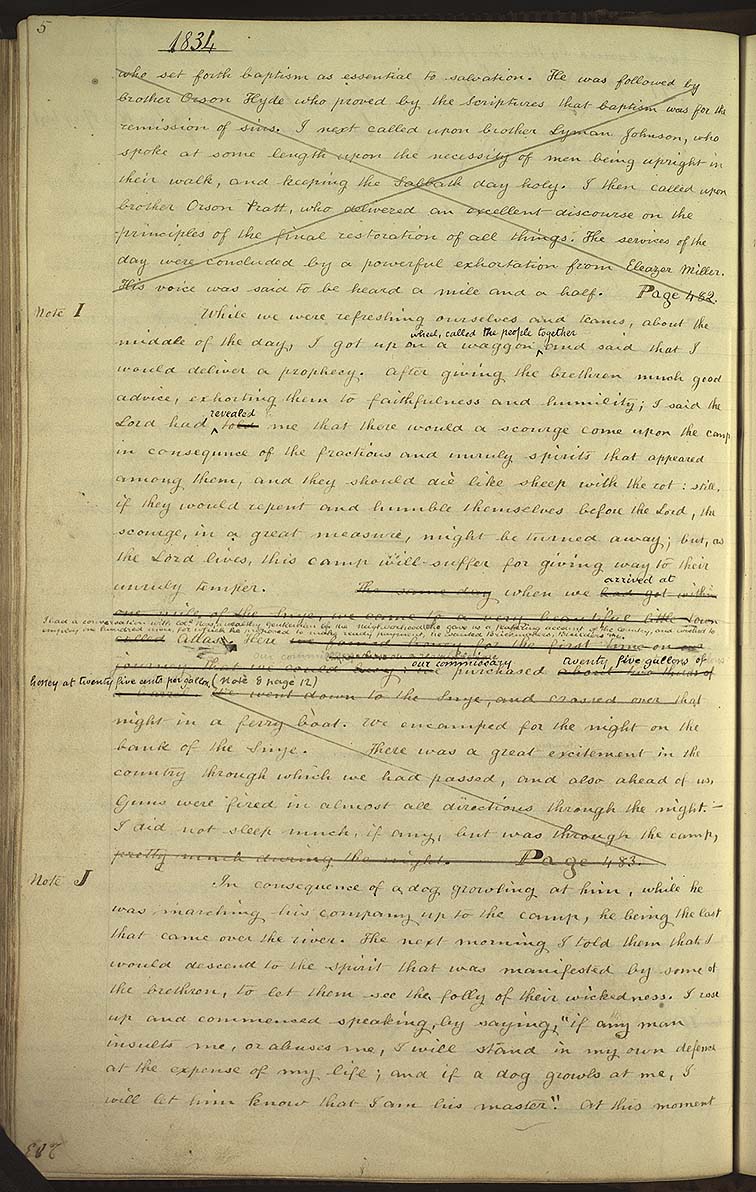 5
1834
who set forth baptism as essential to salvation. He was followed by
brother Orson Hyde who proved by the Scriptures that baptism was for the
remission of sins. I next called upon brother Lyman Johnson, who
spoke at some length upon the necessity of men being upright in
their walk, and keeping the Sabbath day holy. I then called upon
brother Orson Pratt, who delivered an excellent discourse on the
principles of the final restoration of all things. The services of the
day were concluded by a powerful exhortation from Eleazer Miller.
His voice was said to be heard a mile and a half. Page 482.
Note I
While we were refreshing ourselves and teams, about the
wheel, called the people together
middle of the day, I got up on a waggon and said that I
would deliver a prophecy. After giving the brethren much good
advice, exhorting them to faithfulness and humility; I said the
revealed
Lord had told me that there would a scourge come upon the camp
in consequnce of the fractious and unruly spirits that appeared
among them, and they should die like sheep with the rot: still,
if they would repent and humble themselves before the Lord, the
scourge, in a great measure, might be turned away; but, as
the Lord lives, this camp will suffer for giving way to their
arrived at
unruly temper. The same day when we had got within
one mile of the Snye, we came to a very beautiful little town
I had a conversation with Col. Ross, a wealthy gentleman of the neighborhood who gave us a flattering account of the country, and wished to
employ one hundred men, for which he proposed to make ready payment, he wanted Brickmakers, Builders &c.
called Atlas. Here we found honey for the first time on our
our commissary twenty five gallons of
journey that we could buy; we purchased about two thirds of
honey at twenty five cents per gallon (note 8 page 12)
We went down to the Snye, and crossed over that
night in a ferry boat. We encamped for the night on the
bank of the Snye. There was a great excitement in the
country through which we had passed, and also ahead of us,
Guns were fired in almost all directions through the night.—
I did not sleep much, if any, but was through the camp,
pretty much during the night. Page 483.
Note J
In consequence of a dog growling at him, while he
was marching his company up to the camp, he being the last
that came over the river. The next morning I told them that I
would descend to the spirit that was manifested by some of
the brethren, to let them see the folly of their wickedness. I rose
up and commenced speaking, by saying, "if any man
insults me, or abuses me, I will stand in my own defence
at the expense of my life; and if a dog growls at me, I
will let him know that I am his master." At this moment